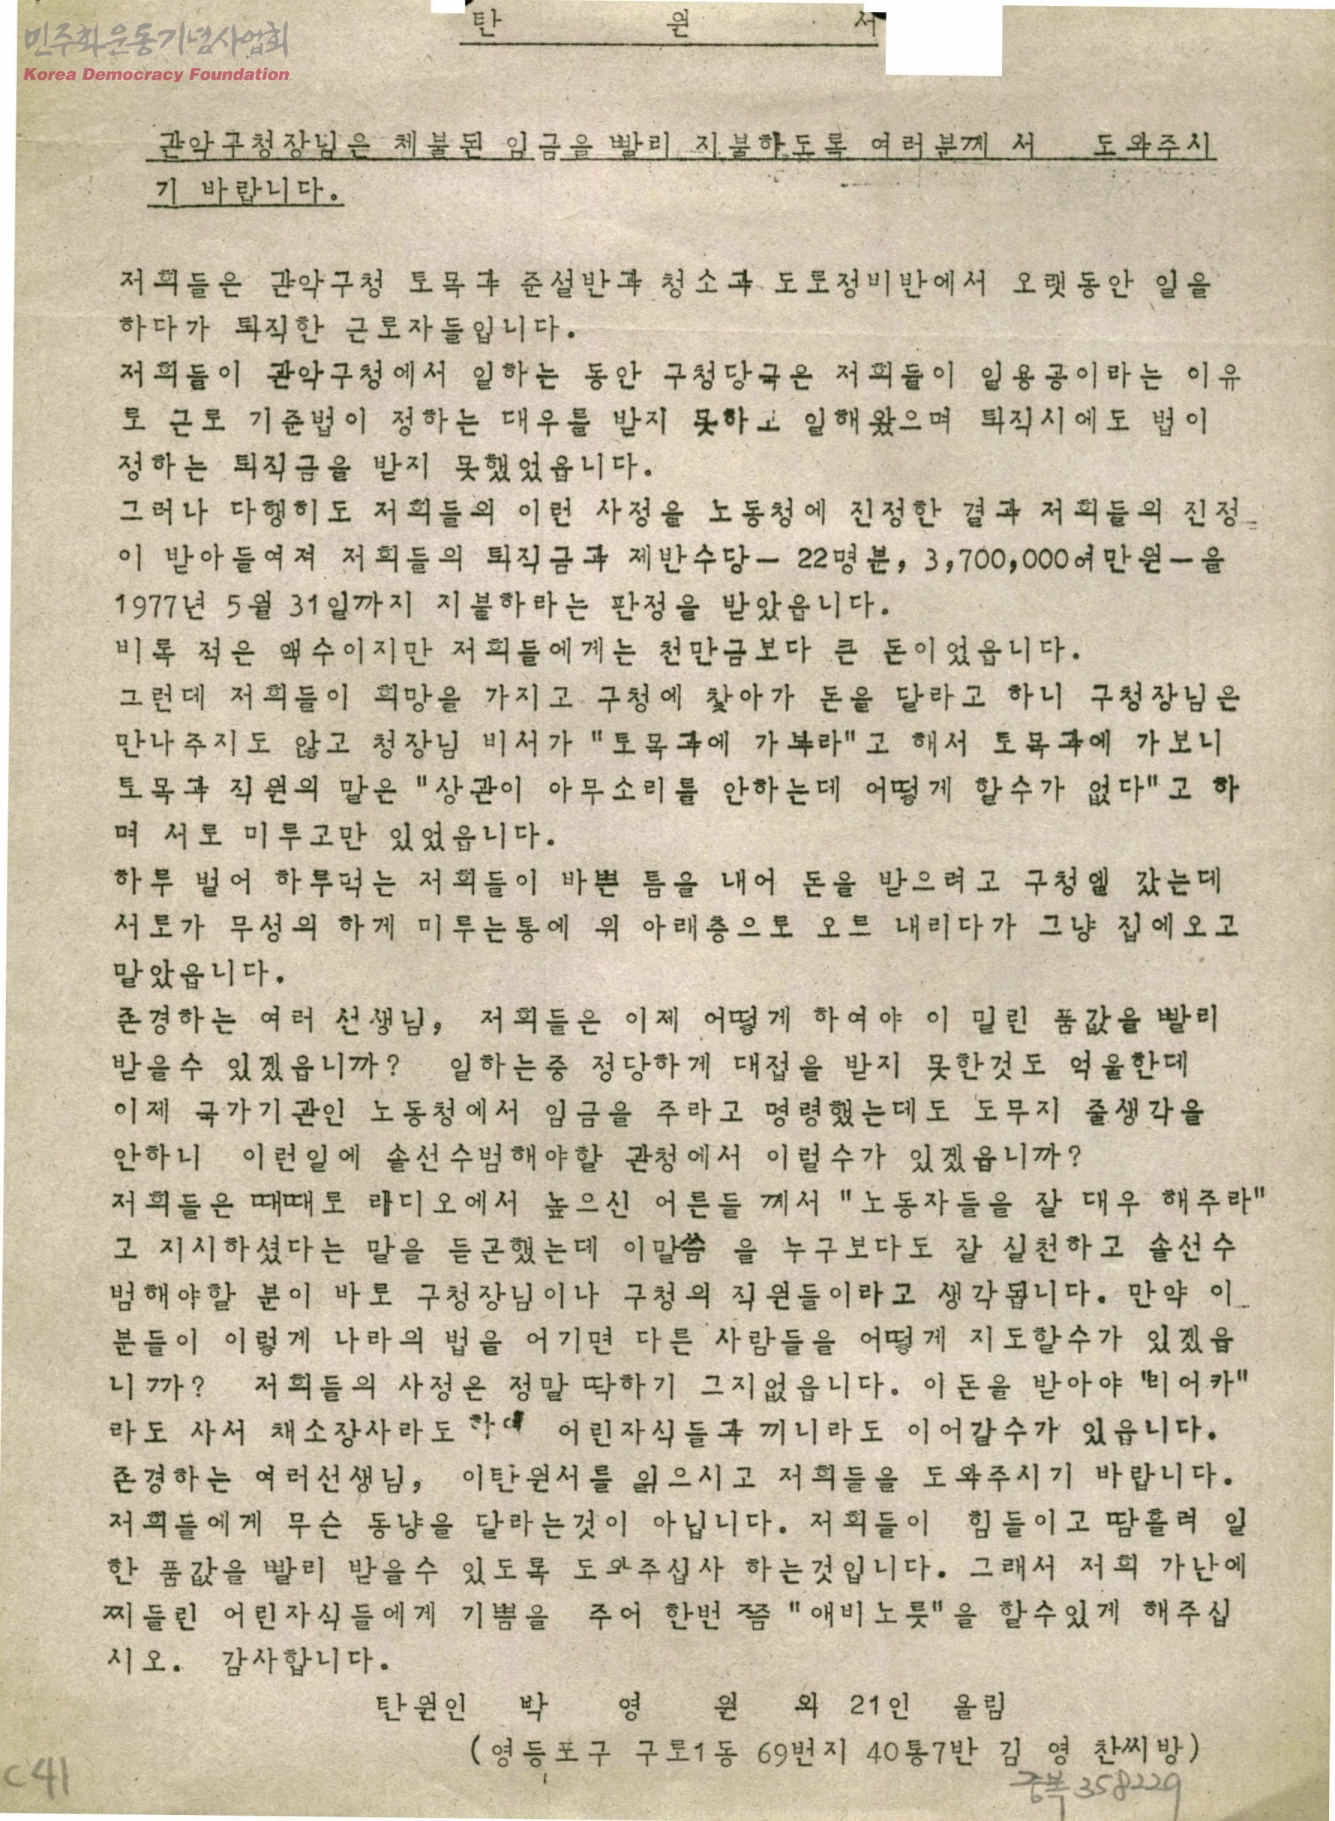 민주화운동기념사업회
Korea Democracy Foundation
탄 원 서
관악구청장님은 체불된 임금을 빨리 지불하도록 여러분께 서 도와주시
기 바랍니다.
저희들은 관악구청 토목과 준설반과 청소과 도로정비반에서 오랫동안 일을
하다가 퇴직한 근로자들입니다.
저희들이 관악구청에서 일하는 동안 구청당국은 저희들이 일용공이라는 이유
로 근로 기준법이 정하는 대우를 받지 못하고 일해왔으며 퇴직시에도 법이
정하는 퇴직금을 받지 못했었읍니다.
그러나 다행히도 저희들의 이런 사정을 노동청에 진정한 결과 저희들의 진정
이 받아들여져 저희들의 퇴직금과 제반수당— 22명분, 3,700,000여만원—을
1977년 5월 31일까지 지불하라는 판정을 받았읍니다.
비록 적은 액수이지만 저희들에게는 천만금보다 큰 돈이었읍니다.
그런데 저희들이 희망을 가지고 구청에 찾아가 돈을 달라고 하니 구청장님은
만나주지도 않고 청장님 비서가 "토목과에 가봐라"고 해서 토목과에 가보니
토목과 직원의 말은 "상관이 아무소리를 안하는데 어떻게 할수가 없다"고 하
며 서로 미루고만 있었읍니다.
하루 벌어 하루먹는 저희들이 바쁜 틈을 내어 돈을 받으려고 구청엘 갔는데
서로가 무성의 하게 미루는통에 위 아래층으로 오르 내리다가 그냥 집에오고
말았읍니다.
존경하는 여러 선생님, 저희들은 이제 어떻게 하여야 이 밀린 품값을 빨리
받을수 있겠읍니까? 일하는중 정당하게 대접을 받지 못한것도 억울한데
이제 국가기관인 노동청에서 임금을 주라고 명령했는데도 도무지 줄생각을
안하니 이런일에 솔선수범해야할 관청에서 이럴수가 있겠읍니까?
저희들은 때때로 라디오에서 높으신 어른들 께서 "노동자들을 잘 대우 해주라"
고 지시하셨다는 말을 듣곤했는데 이말씀 을 누구보다도 잘 실천하고 솔선수
범해야할 분이 바로 구청장님이나 구청의 직원들이라고 생각됩니다. 만약 이
분들이 이렇게 나라의 법을 어기면 다른 사람들을 어떻게 지도할수가 있겠읍
니까? 저희들의 사정은 정말 딱하기 그지없읍니다. 이돈을 받아야 "리어카"
라도 사서 채소장사라도 하여 어린자식들과 끼니라도 이어갈수가 있읍니다.
존경하는 여러선생님, 이탄원서를 읽으시고 저희들을 도와주시기 바랍니다.
저희들에게 무슨 동냥을 달라는것이 아닙니다. 저희들이 힘들이고 땀흘려 일
한 품값을 빨리 받을수 있도록 도와주십사 하는것입니다. 그래서 저희 가난에
찌들린 어린자식들에게 기쁨을 주어 한번 쯤 "애비노릇"을 할수있게 해주십
시오. 감사합니다.
탄원인 박 영 원 외 21인 올림
(영등포구 구로1동 69번지 40통7반 김 영 찬씨방)
C41
중복 358229